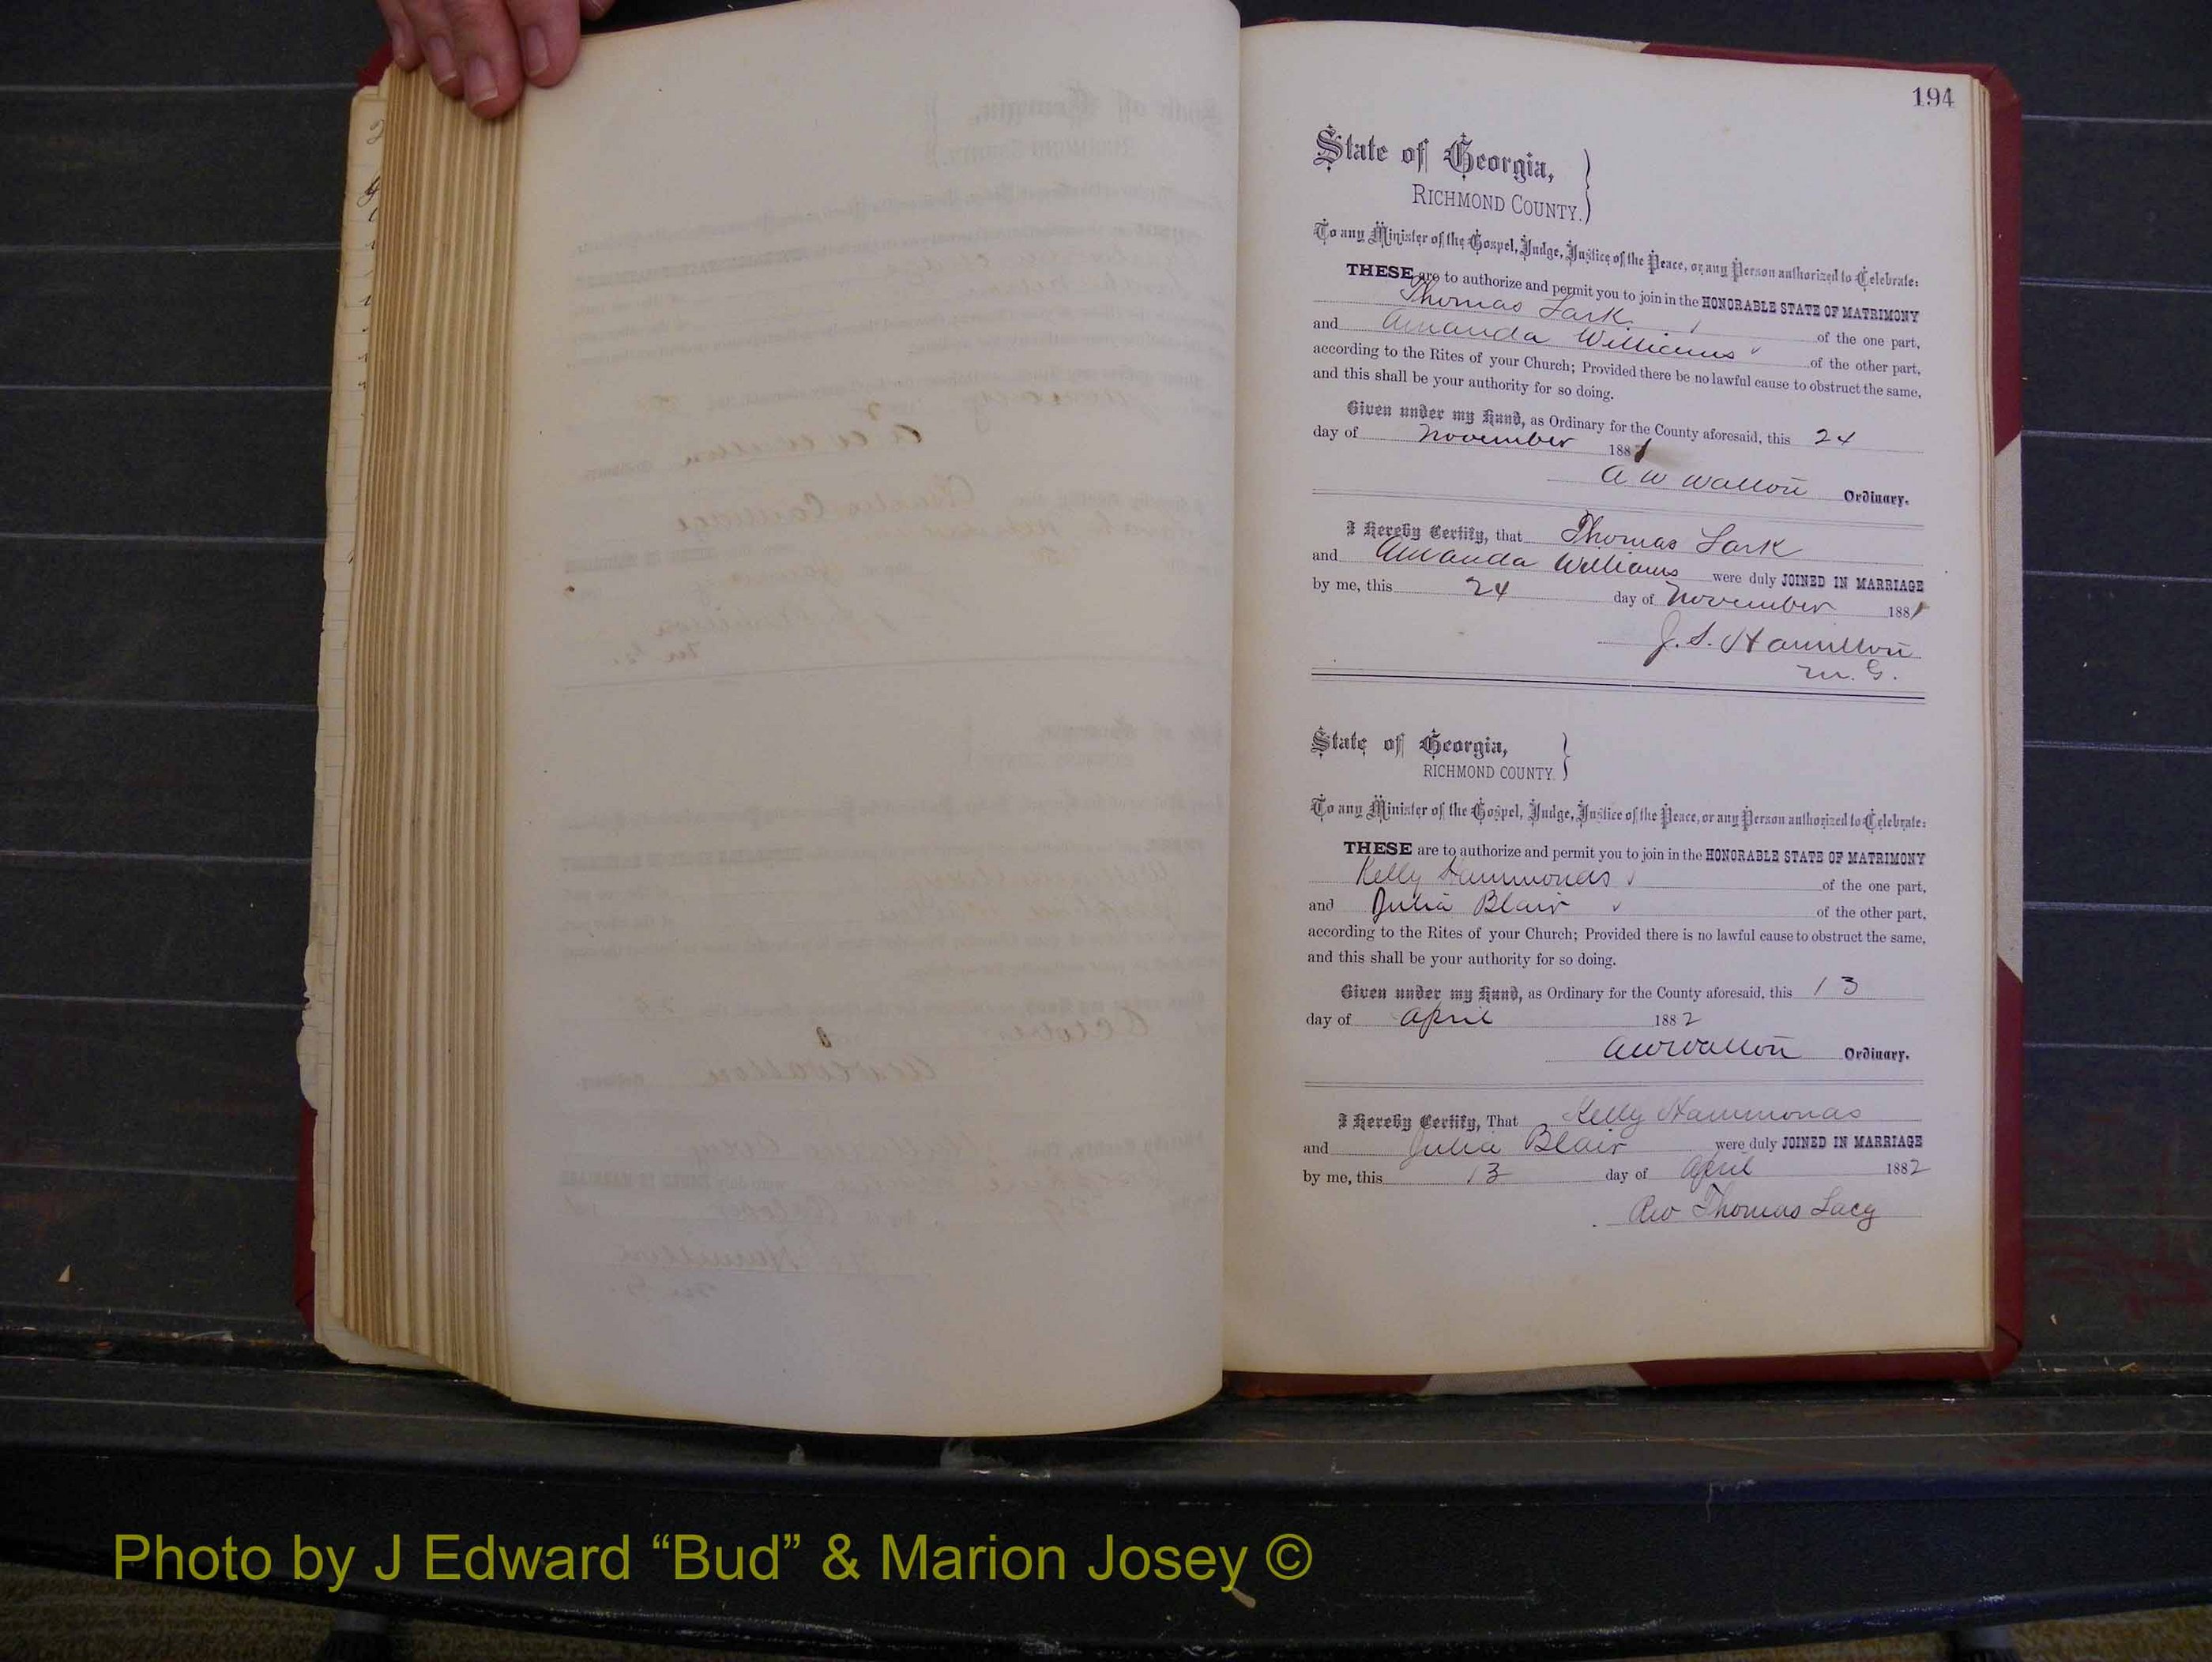 194
State of Georgia,
RICHMOND COUNTY.
To any Minister of the Gospel, Judge, Justice of the Peace, or any Person authorized to Celebrate:
THESE are to authorize and permit you to join in the HONORABLE STATE OF MATRIMONY
Thomas Lark of the one part,
and Amanda Williams of the other part,
according to the Rites of your Church; Provided there be no lawful cause to obstruct the same,
and this shall be your authority for so doing.
Given under my Hand, as Ordinary for the County aforesaid, this 24
day of November 1881
A W Walton Ordinary.
I Hereby Certify, that Thomas Lark
and Amanda Williams were duly JOINED IN MARRIAGE
by me, this 24 day of November 1881
J. S. Hamilton
M. G.
State of Georgia,
RICHMOND COUNTY.
To any Minister of the Gospel, Judge, Justice of the Peace, or any Person authorized to Celebrate:
THESE are to authorize and permit you to join in the HONORABLE STATE OF MATRIMONY
Kelly Hammonds of the one part,
and Julia Blair of the other part,
according to the Rites of your Church; Provided there is no lawful cause to obstruct the same,
and this shall be your authority for so doing.
Given under my Hand, as Ordinary for the County aforesaid, this 13
day of April 1882
A W Walton Ordinary.
I Hereby Certify, That Kelly Hammonds
and Julia Blair were duly JOINED IN MARRIAGE
by me, this 13 day of April 1882
Rev Thomas Lacy
Photo by J Edward “Bud” & Marion Josey ©